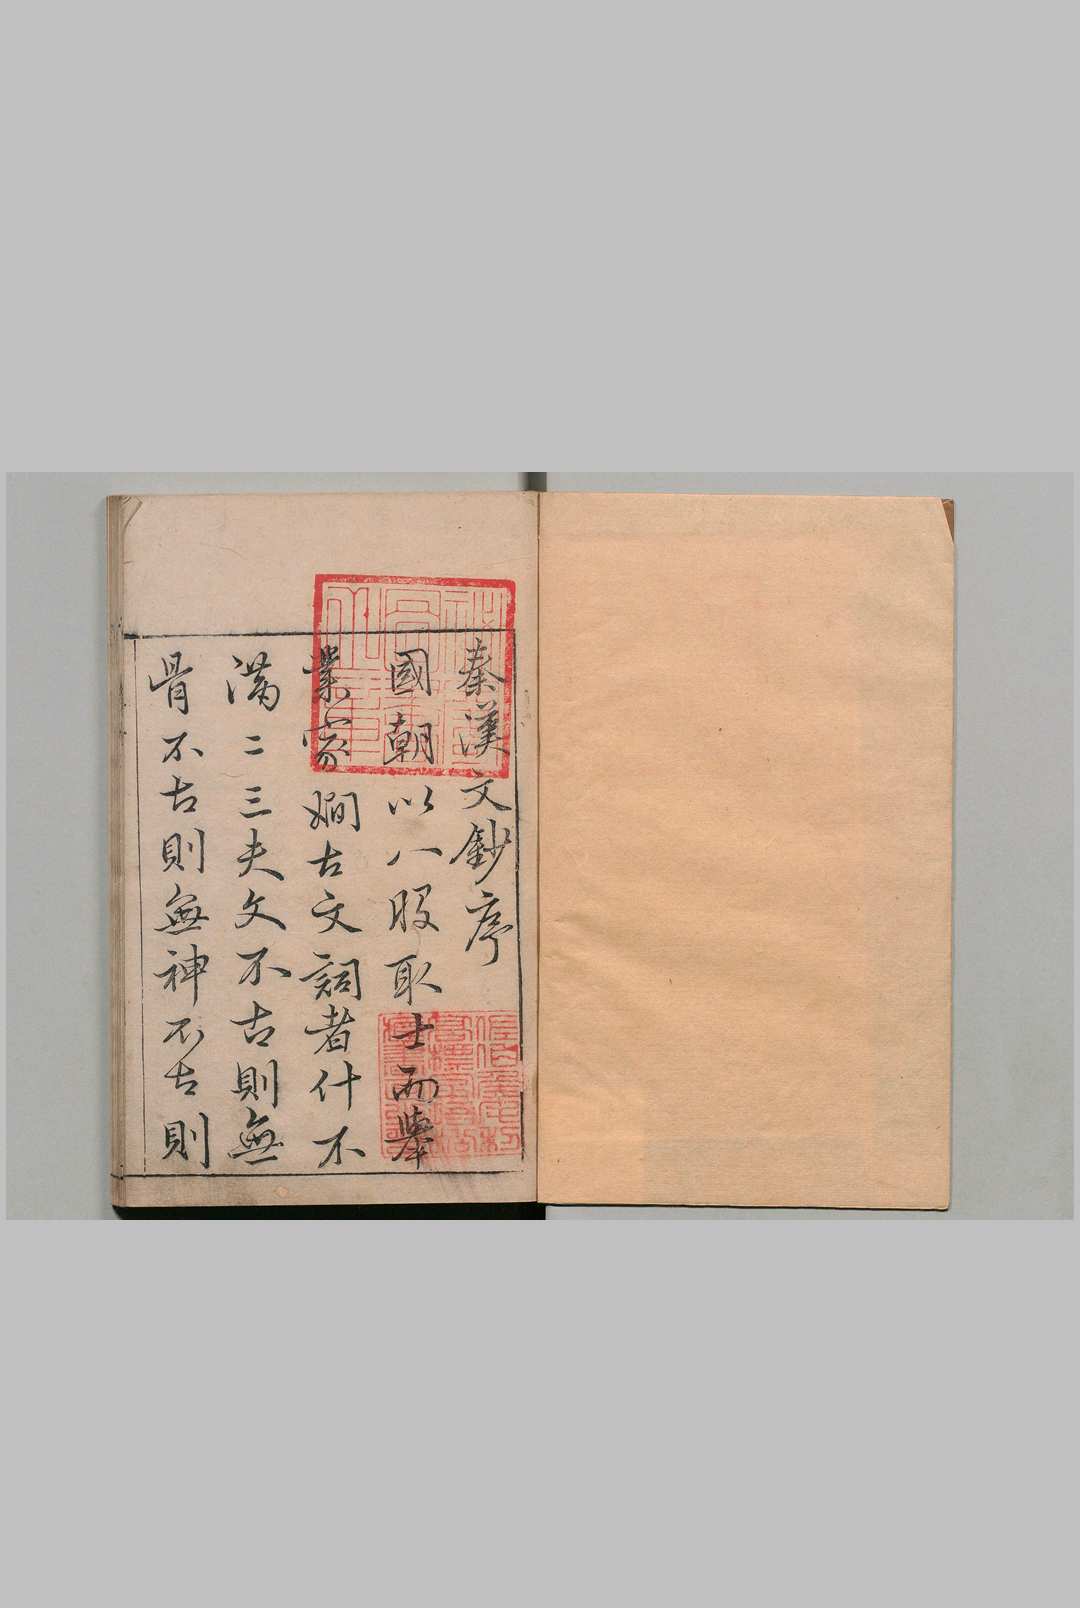 秦漢文鈔序
國朝以八股取士而舉
業家嫺古文詞者什不
滿二三夫文不古則無
骨不古則無神不古則